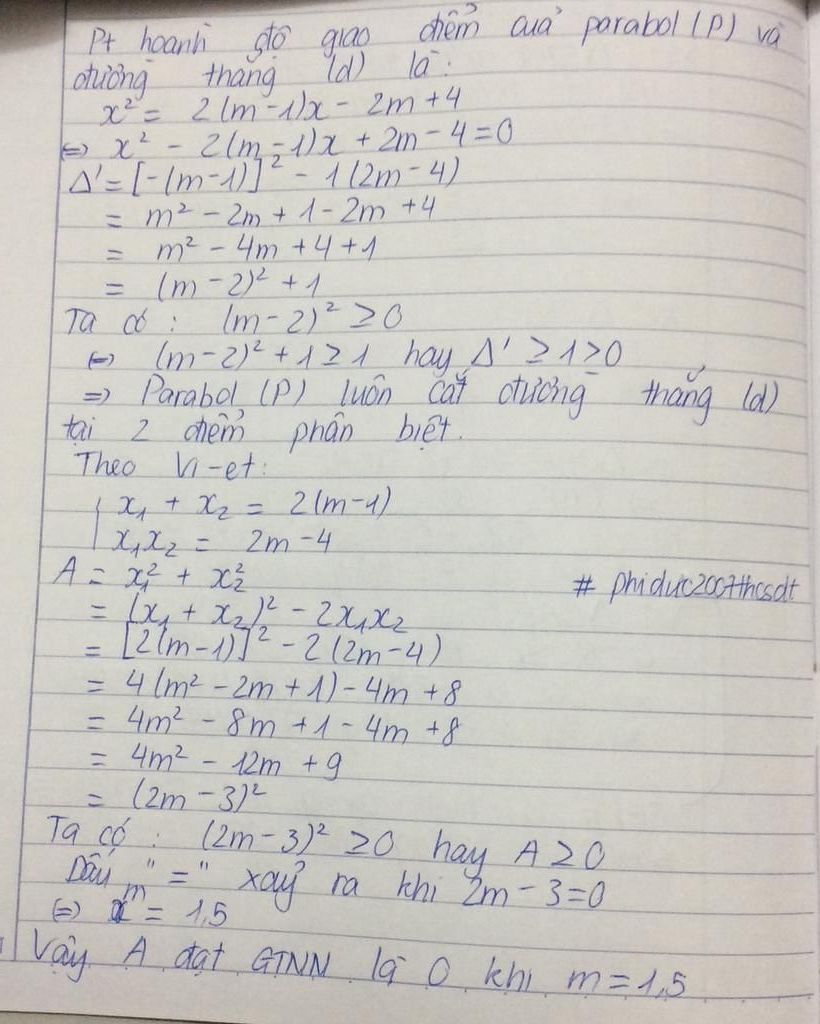 Pt hoành độ giao điểm của parabol (P) và
đường thẳng (d) là:
x² = 2(m-1)x - 2m+4
⇔ x² - 2(m-1)x + 2m - 4 = 0
Δ' = [-(m-1)]² - 1(2m-4)
= m² - 2m + 1 - 2m + 4
= m² - 4m + 4 + 1
= (m-2)² + 1
Ta có : (m-2)² ≥ 0
⇔ (m-2)² + 1 ≥ 1 hay Δ' ≥ 1 > 0
⇒ Parabol (P) luôn cắt đường thẳng (d)
tại 2 điểm phân biệt.
Theo Vi-et:
x₁ + x₂ = 2(m-1)
x₁x₂ = 2m-4
A = x₁² + x₂²
# phiduc2007thcsdt
= (x₁ + x₂)² - 2x₁x₂
= [2(m-1)]² - 2(2m-4)
= 4(m² - 2m + 1) - 4m + 8
= 4m² - 8m + 1 - 4m + 8
= 4m² - 12m + 9
= (2m-3)²
Ta có : (2m-3)² ≥ 0 hay A ≥ 0
Dấu "=" xảy ra khi 2m-3=0
⇔ m = 1,5
Vậy A đạt GTNN là 0 khi m = 1,5